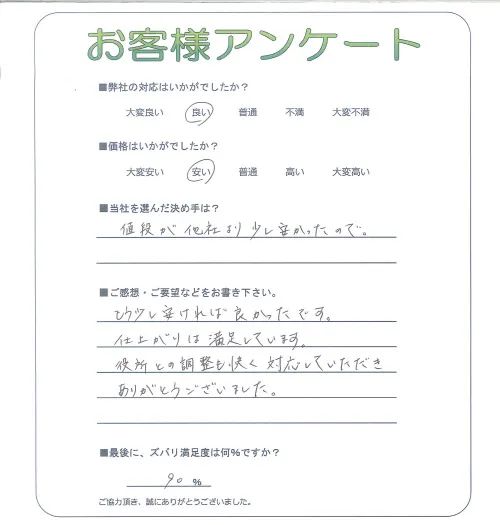 お客様アンケート
■弊社の対応はいかがでしたか?
大変良い 良い 普通 不満 大変不満
■価格はいかがでしたか?
大変安い 安い 普通 高い 大変高い
■当社を選んだ決め手は?
値段が他社より少し安かったので。
■ご感想・ご要望などをお書き下さい。
もう少し安ければ良かったです。
仕上がりは満足しています。
役所との調整も快く対応していただき
ありがとうございました。
■最後に、ズバリ満足度は何%ですか?
90 %
ご協力頂き、誠にありがとうございました。